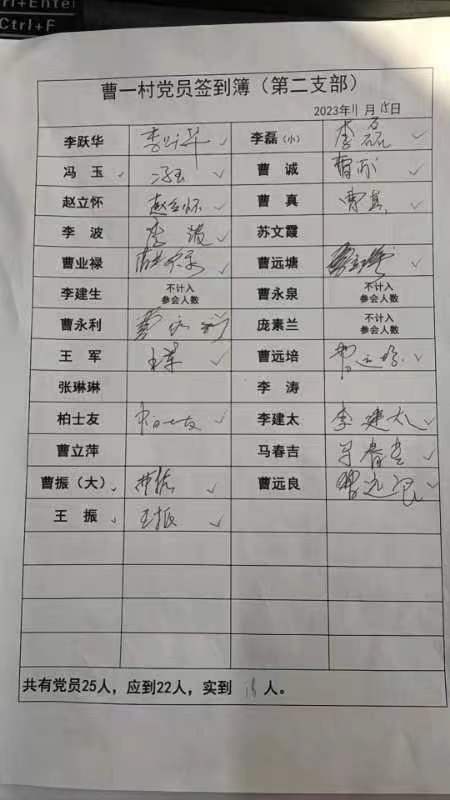 Ctrl+F
曹一村党员签到簿（第二支部）
2023年11月15日
李跃华 李跃华 ✓ 李磊（小） 李磊 ✓
冯 玉 冯玉 ✓ 曹 诚 曹诚 ✓
赵立怀 赵立怀 ✓ 曹 真 曹真 ✓
李 波 李波 ✓ 苏文霞
曹业禄 曹业禄 ✓ 曹远塘 曹远塘 ✓
李建生 不计入 曹永泉 不计入
参会人数 参会人数
曹永利 曹永利 ✓ 庞素兰 不计入
参会人数
王 军 王军 ✓ 曹远培 曹远培 ✓
张琳琳 李 涛
柏士友 柏士友 ✓ 李建太 李建太 ✓
曹立萍 马春吉 马春吉 ✓
曹振（大） 曹振 ✓ 曹远良 曹远良 ✓
王 振 王振 ✓
共有党员25人，应到22人，实到 人。